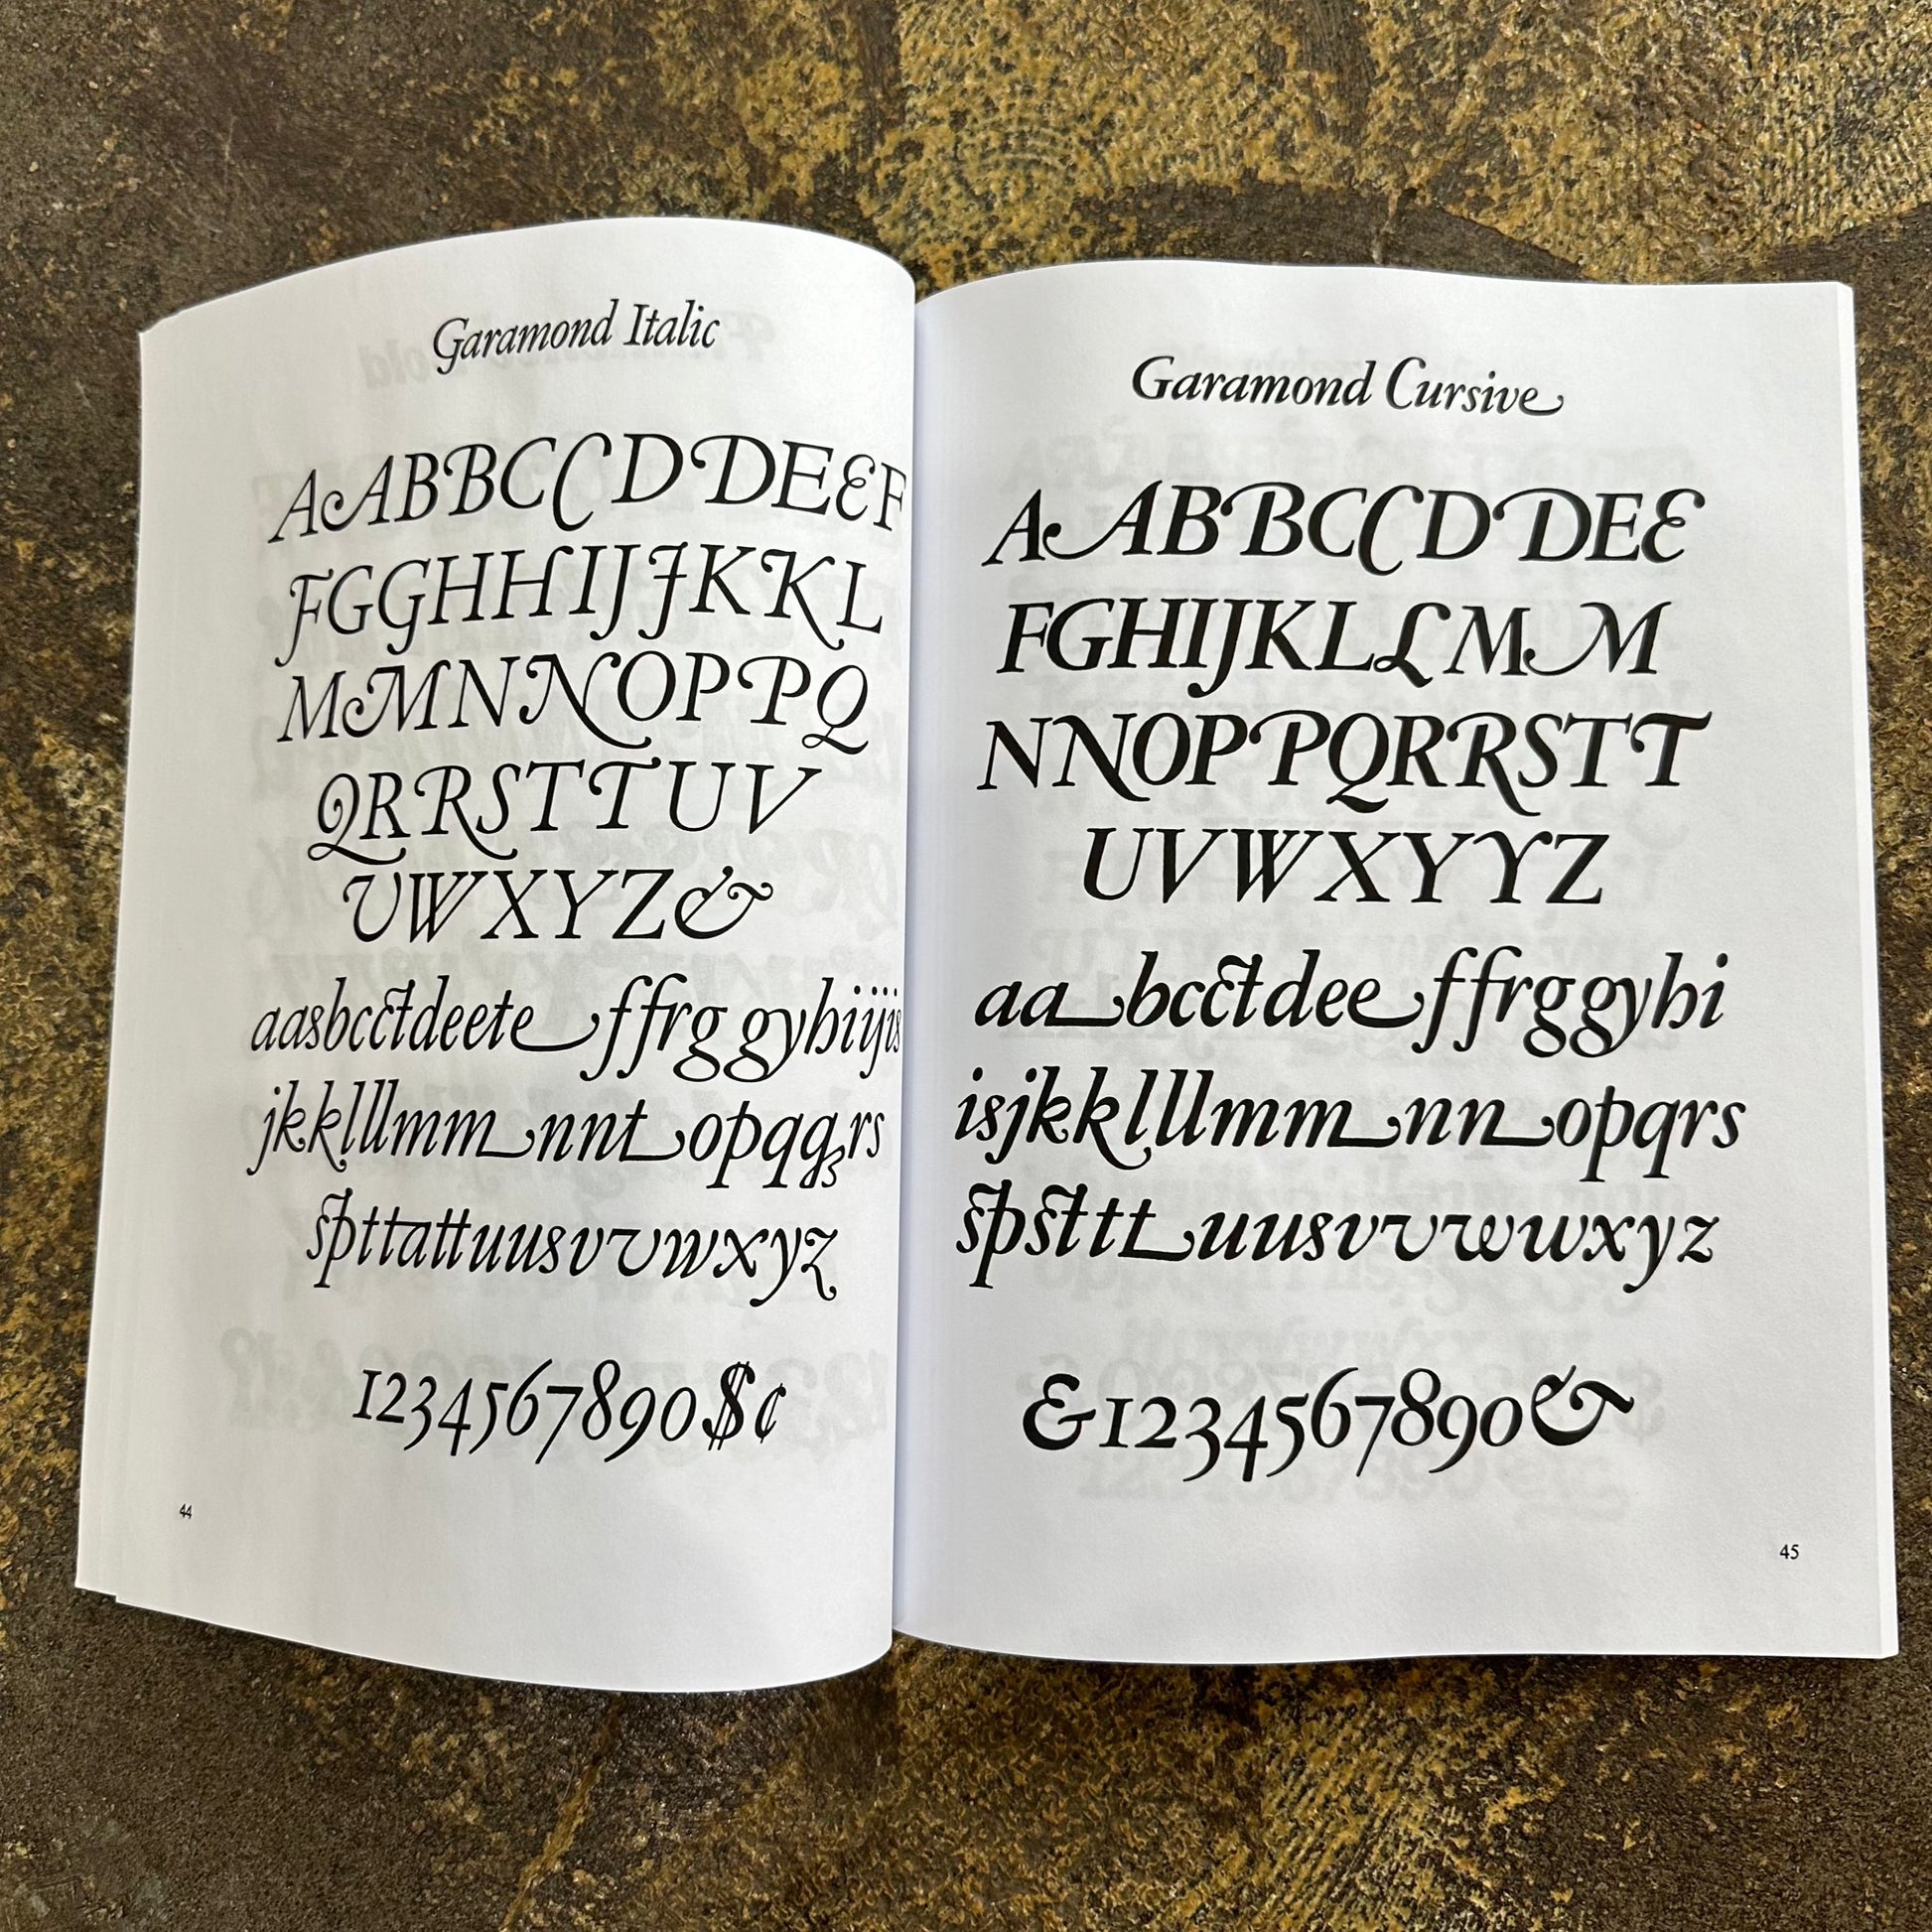 Garamond Italic
AABBCCDDEEF
FGGHHIJJKKL
MMNNOPPQ
QRRSTTUV
UWXYZ&
aasbcctdeete ffrg gyhiijis
jkklllmm nnt opqqrs
spttattuusvvwxyz
1234567890$¢
44
Garamond Cursive
AABBCCDDEE
FGHIJKLLMM
NNOPPQRRSTT
UVWXYYZ
aa bcctdee ffrggyhi
isjkklllmm nn opqrs
spstttt uusvvwwxyz
&1234567890&
45